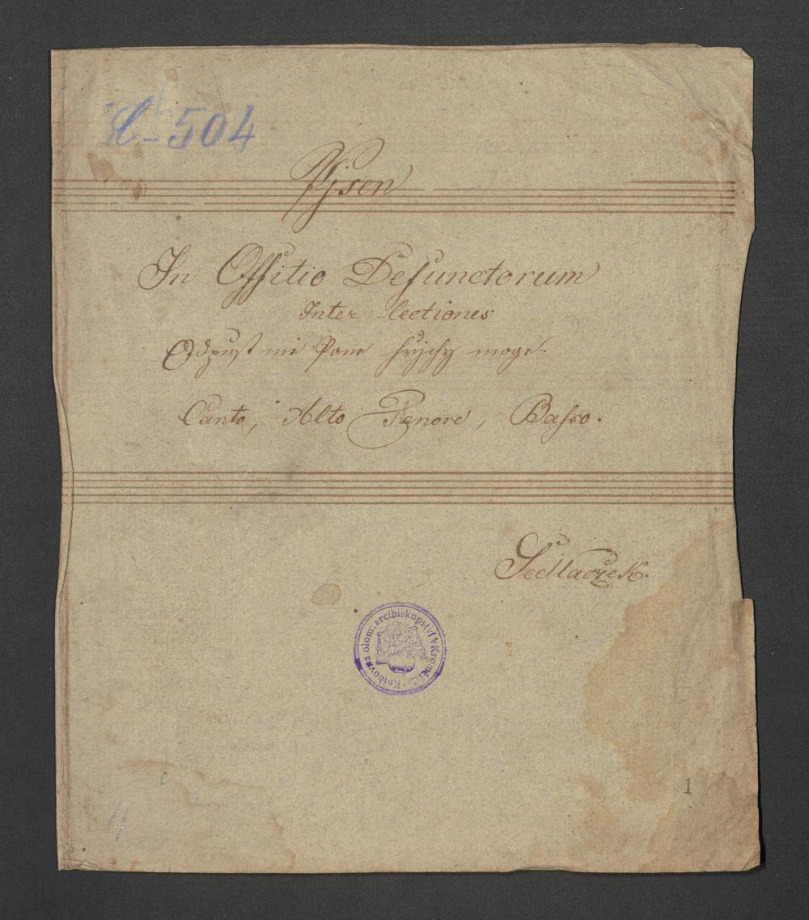 C-504
Pjsen
In Offitio Defunctorum
Inter lectiones
Odpust mě Pane hřjchy moge.
Canto, Alto Tenore, Basso.
Sedlaczek.
Knihovna olom. arcibiskupství v Kroměříži
1